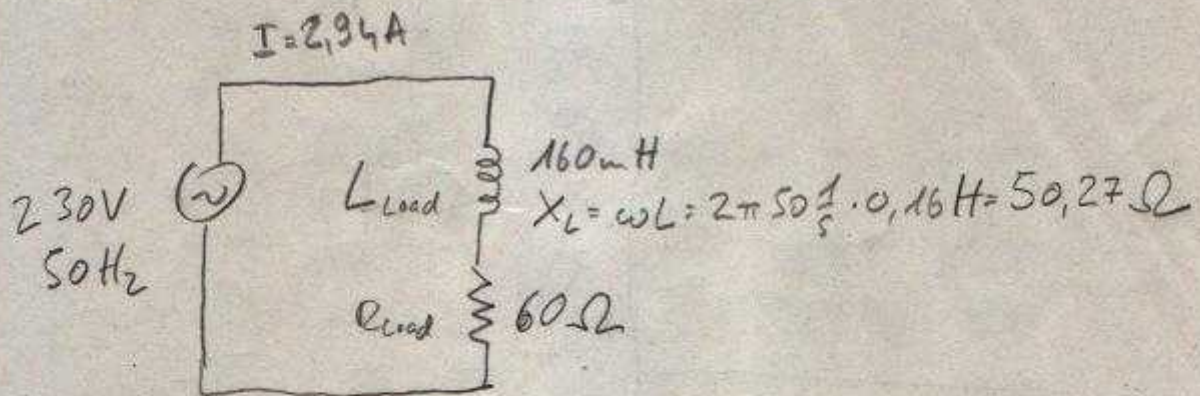 I=2,94A
230V
50Hz
L Load
160mH
X_L = ωL = 2π 50 1/s · 0,16H = 50,27 Ω
R Load
60Ω